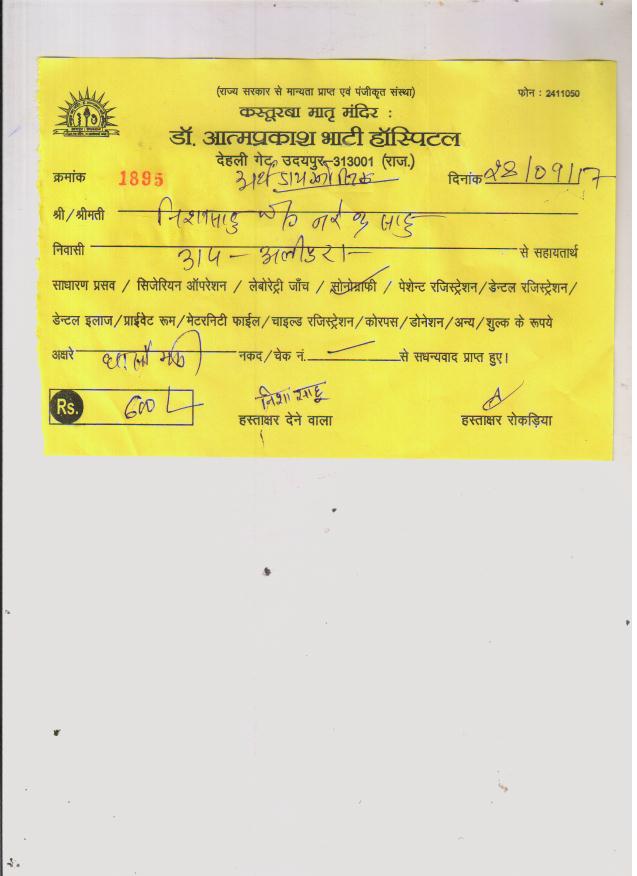 (राज्य सरकार से मान्यता प्राप्त एवं पंजीकृत संस्था) फोन : 2411050
कस्तूरबा मातृ मंदिर :
डॉ. आत्मप्रकाश भाटी हॉस्पिटल
देहली गेट, उदयपुर-313001 (राज.)
क्रमांक 1895 अर्थ डायग्नोस्टिक दिनांक 28/09/17
श्री/श्रीमती निशा साहु w/o नरेन्द्र साहु
निवासी से सहायतार्थ
साधारण प्रसव / सिजेरियन ऑपरेशन / लेबोरेट्री जाँच / सोनोग्राफी / पेशेन्ट रजिस्ट्रेशन/डेन्टल रजिस्ट्रेशन/
डेन्टल इलाज/प्राईवेट रूम/मेटरनिटी फाईल/चाइल्ड रजिस्ट्रेशन/कोरपस/डोनेशन/अन्य/शुल्क के रूपये
अक्षरे नकद/चेक नं. से सधन्यवाद प्राप्त हुए।
Rs. 600/-
निशा साहू
हस्ताक्षर देने वाला हस्ताक्षर रोकड़िया